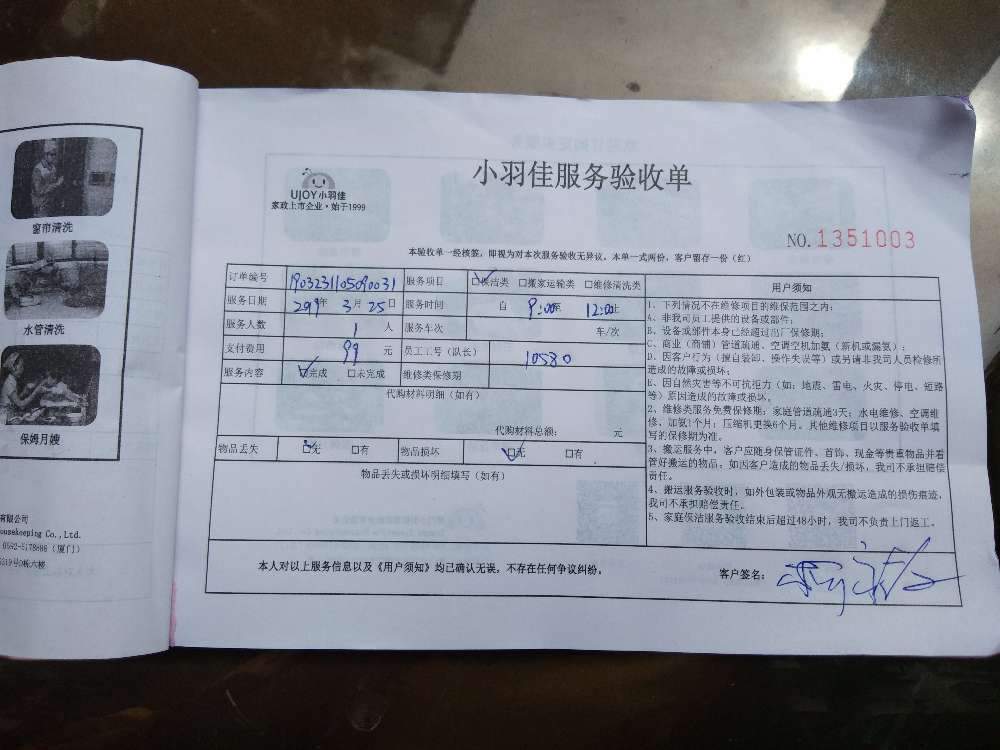 窗帘清洗
水管清洗
保姆月嫂
有限公司
ousekeeping Co.,Ltd.
0592-5178686（厦门）
UJOY小羽佳
家政上市企业·始于1999
小羽佳服务验收单
NO.1351003
本验收单一经核签，即视为对本次服务验收无异议。本单一式两份，客户留存一份（红）
订单编号 1903231105090031 服务项目 □保洁类 □搬家运输类 □维修清洗类
服务日期 2019年 3月 25日 服务时间 自 9:00至 12:00止
服务人数 1 人 服务车次 车/次
支付费用 99 元 员工工号（队长） 10580
服务内容 □完成 □未完成 维修类保修期
代购材料明细（如有）
代购材料总额： 元
物品丢失 □无 □有 物品损坏 □无 □有
物品丢失或损坏明细填写（如有）
用户须知
1、下列情况不在维修项目的维保范围之内：
A、非我司员工提供的设备或部件；
B、设备或部件本身已经超过出厂保修期；
C、商业（商铺）管道疏通、空调空机加氨（新机或漏氨）；
D、因客户行为（擅自装卸、操作失误等）或另请非我司人员检修所
造成的故障或损坏；
E、因自然灾害等不可抗拒力（如：地震、雷电、火灾、停电、短路
等）原因造成的故障或损坏。
2、维修类服务免费保修期：家庭管道疏通3天；水电维修、空调维
修、加氨1个月；压缩机更换6个月。其他维修项目以服务验收单填
写的保修期为准。
3、搬运服务中，客户应随身保管证件、首饰、现金等贵重物品并看
管好搬运的物品；如因客户造成的物品丢失/损坏，我司不承担赔偿
责任。
4、搬运服务验收时，如外包装或物品外观无搬运造成的损伤痕迹，
我司不承担赔偿责任。
5、家庭保洁服务验收结束后超过48小时，我司不负责上门返工。
本人对以上服务信息以及《用户须知》均已确认无误，不存在任何争议纠纷。
客户签名：